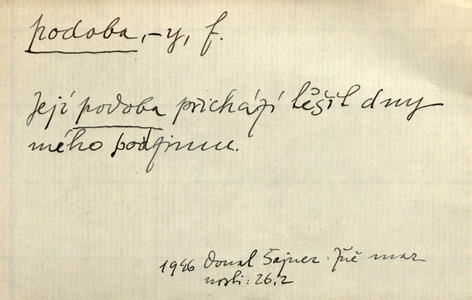 podoba, -y, f.
Její podoba přichází těšit dny
mého podzimu.
1946 Donal Šajner:
nosti: 26.2